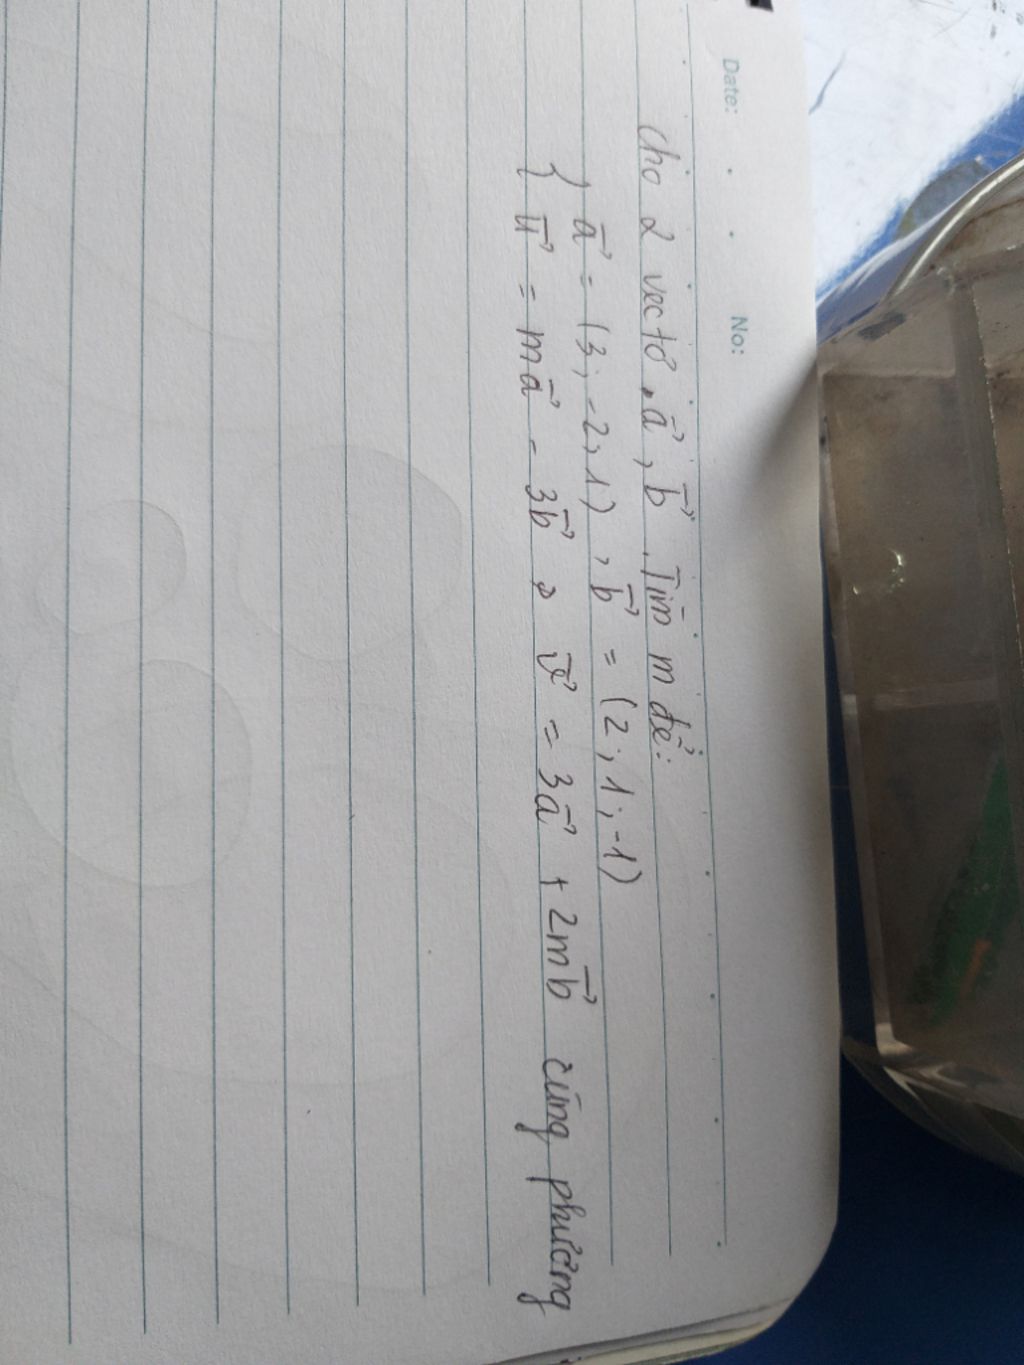 Date: No:
Cho 2 vectơ, a⃗, b⃗. Tìm m để:
{ a⃗ = (3; -2; 1), b⃗ = (2; 1; -1)
u⃗ = ma⃗ - 3b⃗, v⃗ = 3a⃗ + 2mb⃗ cùng phương